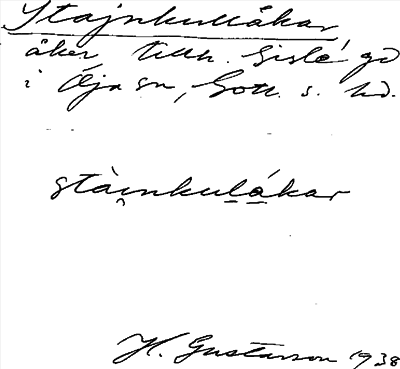 Stajnkullåkar
åker, tillh. Gisle gd
i Öja sn, Gotl. s. hd.
stàinkulåkar
H. Gustavson 1938